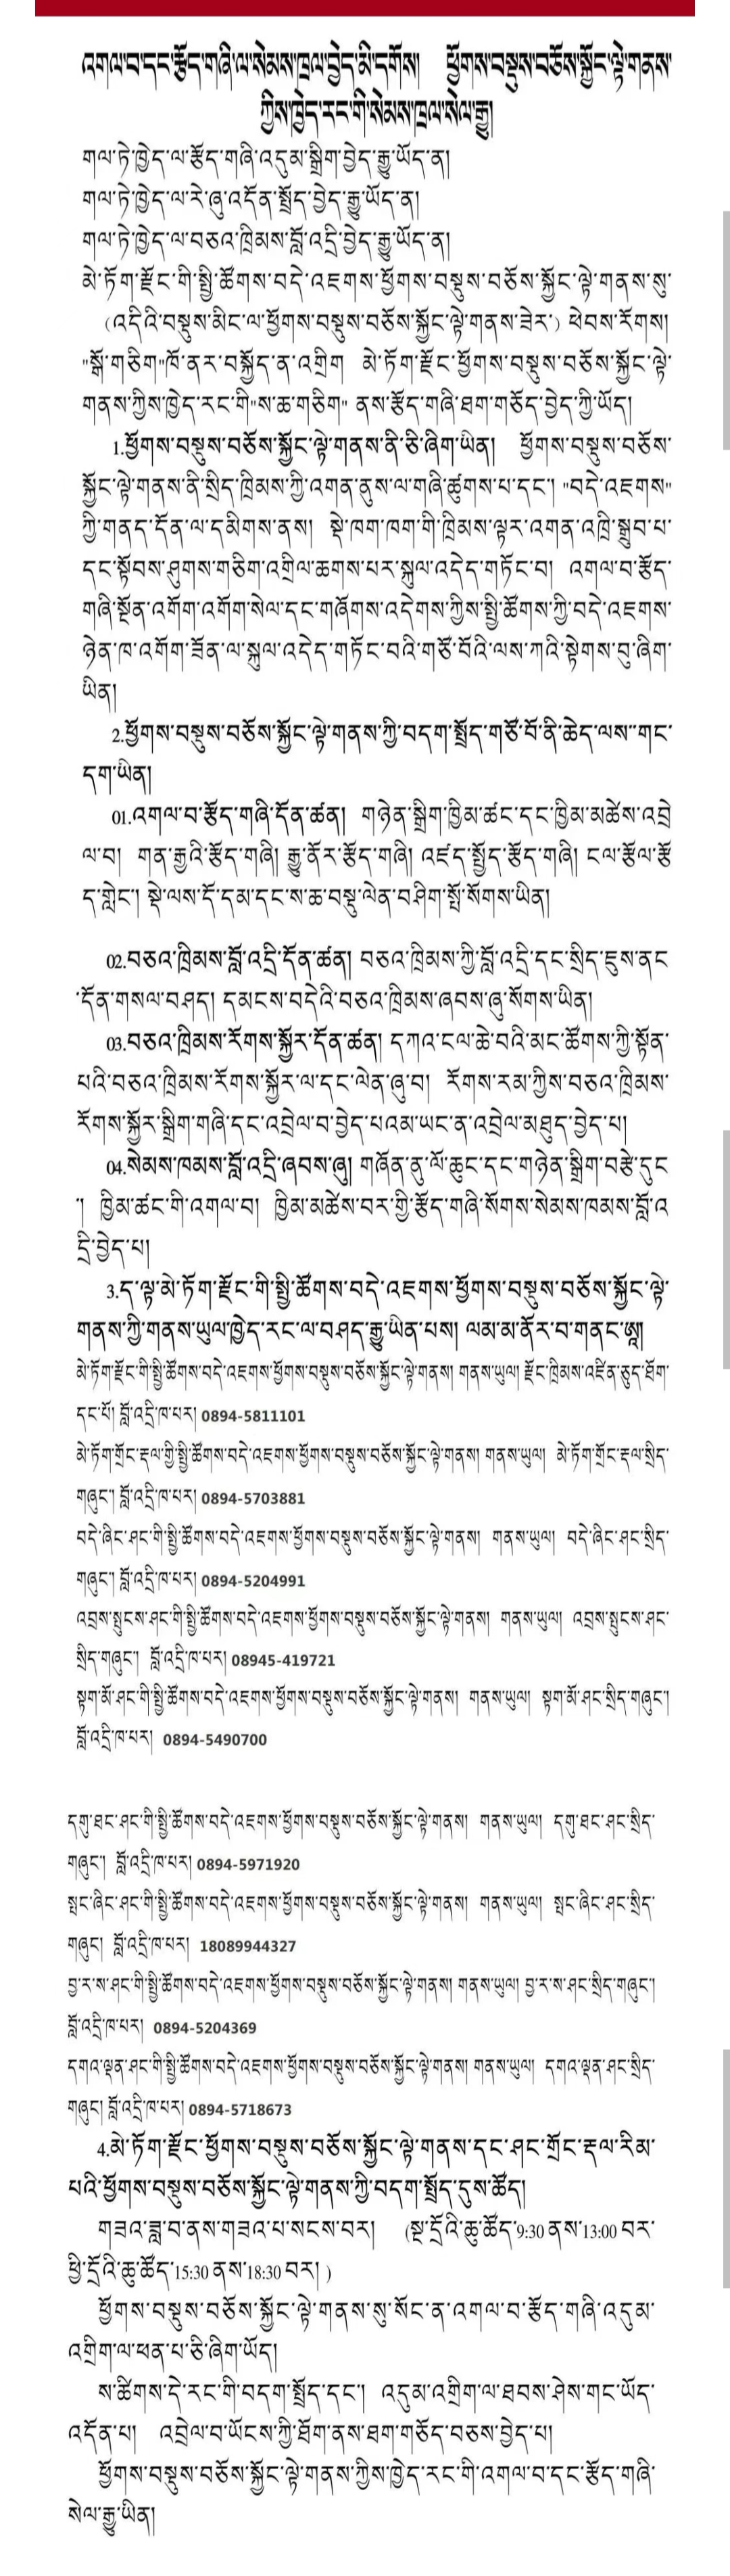 འགལ་བ་དང་རྩོད་གཞི་ལ་སེམས་ཁྲལ་བྱེད་མི་དགོས།   ཕྱོགས་བསྡུས་བཅོས་སྐྱོང་ལྟེ་གནས་
ཀྱིས་ཁྱེད་རང་གི་སེམས་ཁྲལ་སེལ་རྒྱུ།
གལ་ཏེ་ཁྱེད་ལ་རྩོད་གཞི་འདུམ་སྒྲིག་བྱེད་རྒྱུ་ཡོད་ན།
གལ་ཏེ་ཁྱེད་ལ་རེ་ཞུ་འདོན་སྤྲོད་བྱེད་རྒྱུ་ཡོད་ན།
གལ་ཏེ་ཁྱེད་ལ་བཅའ་ཁྲིམས་བློ་འདྲི་བྱེད་རྒྱུ་ཡོད་ན།
མེ་ཏོག་རྫོང་གི་སྤྱི་ཚོགས་བདེ་འཇགས་ཕྱོགས་བསྡུས་བཅོས་སྐྱོང་ལྟེ་གནས་སུ་
(འདིའི་བསྡུས་མིང་ལ་ཕྱོགས་བསྡུས་བཅོས་སྐྱོང་ལྟེ་གནས་ཟེར་) ཕེབས་རོགས།
"སྒོ་གཅིག"ཁོ་ནར་བསྐྱོད་ན་འགྲིག  མེ་ཏོག་རྫོང་ཕྱོགས་བསྡུས་བཅོས་སྐྱོང་ལྟེ་
གནས་ཀྱིས་ཁྱེད་རང་གི"ས་ཆ་གཅིག" ནས་རྩོད་གཞི་ཐག་གཅོད་བྱེད་ཀྱི་ཡོད།
1.ཕྱོགས་བསྡུས་བཅོས་སྐྱོང་ལྟེ་གནས་ནི་ཅི་ཞིག་ཡིན།   ཕྱོགས་བསྡུས་བཅོས་
སྐྱོང་ལྟེ་གནས་ནི་སྲིད་ཁྲིམས་ཀྱི་འགན་ནུས་ལ་གཞི་ཚུགས་པ་དང་། "བདེ་འཇགས"
ཀྱི་གནད་དོན་ལ་དམིགས་ནས།  སྡེ་ཁག་ཁག་གི་ཁྲིམས་ལྟར་འགན་འཁྲི་སྒྲུབ་པ་
དང་སྟོབས་ཤུགས་གཅིག་འགྲིལ་ཆགས་པར་སྐུལ་འདེད་གཏོང་བ།  འགལ་བ་རྩོད་
གཞི་སྔོན་འགོག་འགོག་སེལ་དང་གཞོགས་འདེགས་ཀྱིས་སྤྱི་ཚོགས་ཀྱི་བདེ་འཇགས་
ཉེན་ཁ་འགོག་ཟོན་ལ་སྐུལ་འདེད་གཏོང་བའི་གཙོ་བོའི་ལས་ཀའི་སྟེགས་བུ་ཞིག་
ཡིན།
2.ཕྱོགས་བསྡུས་བཅོས་སྐྱོང་ལྟེ་གནས་ཀྱི་བདག་སྤྲོད་གཙོ་བོ་ནི་ཆེད་ལས་གང་
དག་ཡིན།
01.འགལ་བ་རྩོད་གཞི་དོན་ཚན།  གཉེན་སྒྲིག་ཁྱིམ་ཚང་དང་ཁྱིམ་མཚེས་འབྲེ
ལ་བ།  གན་རྒྱའི་རྩོད་གཞི།  རྒྱུ་ནོར་རྩོད་གཞི།  འཛད་སྤྱོད་རྩོད་གཞི།  ངལ་རྩོལ་རྩོ
ད་གླེང་།  སྡེ་ལས་དོ་དམ་དང་ས་ཆ་བསྡུ་ལེན་བཤིག་སྤོ་སོགས་ཡིན།
02.བཅའ་ཁྲིམས་བློ་འདྲི་དོན་ཚན། བཅའ་ཁྲིམས་ཀྱི་བློ་འདྲི་དང་སྲིད་ཇུས་ནང
་དོན་གསལ་བཤད།  དམངས་བདེའི་བཅའ་ཁྲིམས་ཞབས་ཞུ་སོགས་ཡིན།
03.བཅའ་ཁྲིམས་རོགས་སྐྱོར་དོན་ཚན། དཀའ་ངལ་ཆེ་བའི་མང་ཚོགས་ཀྱི་སྟོན་
པའི་བཅའ་ཁྲིམས་རོགས་སྐྱོར་ལ་དང་ལེན་ཞུ་བ།  རོགས་རམ་ཀྱིས་བཅའ་ཁྲིམས་
རོགས་སྐྱོར་སྒྲིག་གཞི་དང་འབྲེལ་བ་བྱེད་པའམ་ཡང་ན་འབྲེལ་མཐུད་བྱེད་པ།
04.སེམས་ཁམས་བློ་འདྲི་ཞབས་ཞུ། གཞོན་ནུ་ལོ་ཆུང་དང་གཉེན་སྒྲིག་བརྩེ་དུང
་།  ཁྱིམ་ཚང་གི་འགལ་བ།  ཁྱིམ་མཚེས་བར་གྱི་རྩོད་གཞི་སོགས་སེམས་ཁམས་བློ་འ
དྲི་བྱེད་པ།
3.ད་ལྟ་མེ་ཏོག་རྫོང་གི་སྤྱི་ཚོགས་བདེ་འཇགས་ཕྱོགས་བསྡུས་བཅོས་སྐྱོང་ལྟེ་
གནས་ཀྱི་གནས་ཡུལ་ཁྱེད་རང་ལ་བཤད་རྒྱུ་ཡིན་པས།  ལམ་མ་ནོར་བ་གནང་ཨཱ།
མེ་ཏོག་རྫོང་གི་སྤྱི་ཚོགས་བདེ་འཇགས་ཕྱོགས་བསྡུས་བཅོས་སྐྱོང་ལྟེ་གནས། གནས་ཡུལ། རྫོང་ཁྲིམས་འཛིན་ཅུད་ཐོག་
དང་པོ། བློ་འདྲི་ཁ་པར། 0894-5811101
མེ་ཏོག་གྲོང་རྡལ་གྱི་སྤྱི་ཚོགས་བདེ་འཇགས་ཕྱོགས་བསྡུས་བཅོས་སྐྱོང་ལྟེ་གནས། གནས་ཡུལ།  མེ་ཏོག་གྲོང་རྡལ་སྲིད་
གཞུང་། བློ་འདྲི་ཁ་པར། 0894-5703881
བདེ་ཞིང་ཤང་གི་སྤྱི་ཚོགས་བདེ་འཇགས་ཕྱོགས་བསྡུས་བཅོས་སྐྱོང་ལྟེ་གནས།  གནས་ཡུལ།  བདེ་ཞིང་ཤང་སྲིད་
གཞུང་། བློ་འདྲི་ཁ་པར། 0894-5204991
འབྲས་སྤུངས་ཤང་གི་སྤྱི་ཚོགས་བདེ་འཇགས་ཕྱོགས་བསྡུས་བཅོས་སྐྱོང་ལྟེ་གནས།  གནས་ཡུལ།  འབྲས་སྤུངས་ཤང་
སྲིད་གཞུང་།  བློ་འདྲི་ཁ་པར། 08945-419721
སྟག་མོ་ཤང་གི་སྤྱི་ཚོགས་བདེ་འཇགས་ཕྱོགས་བསྡུས་བཅོས་སྐྱོང་ལྟེ་གནས།  གནས་ཡུལ།  སྟག་མོ་ཤང་སྲིད་གཞུང་།
བློ་འདྲི་ཁ་པར།  0894-5490700
དགུ་ཐང་ཤང་གི་སྤྱི་ཚོགས་བདེ་འཇགས་ཕྱོགས་བསྡུས་བཅོས་སྐྱོང་ལྟེ་གནས།  གནས་ཡུལ།  དགུ་ཐང་ཤང་སྲིད་
གཞུང་།  བློ་འདྲི་ཁ་པར། 0894-5971920
སྤང་ཞིང་ཤང་གི་སྤྱི་ཚོགས་བདེ་འཇགས་ཕྱོགས་བསྡུས་བཅོས་སྐྱོང་ལྟེ་གནས།  གནས་ཡུལ།  སྤང་ཞིང་ཤང་སྲིད་
གཞུང་།  བློ་འདྲི་ཁ་པར།  18089944327
བྱ་ར་ས་ཤང་གི་སྤྱི་ཚོགས་བདེ་འཇགས་ཕྱོགས་བསྡུས་བཅོས་སྐྱོང་ལྟེ་གནས། གནས་ཡུལ། བྱ་ར་ས་ཤང་སྲིད་གཞུང་།
བློ་འདྲི་ཁ་པར།  0894-5204369
དགའ་ལྡན་ཤང་གི་སྤྱི་ཚོགས་བདེ་འཇགས་ཕྱོགས་བསྡུས་བཅོས་སྐྱོང་ལྟེ་གནས། གནས་ཡུལ།  དགའ་ལྡན་ཤང་སྲིད་
གཞུང་། བློ་འདྲི་ཁ་པར། 0894-5718673
4.མེ་ཏོག་རྫོང་ཕྱོགས་བསྡུས་བཅོས་སྐྱོང་ལྟེ་གནས་དང་ཤང་གྲོང་རྡལ་རིམ་
པའི་ཕྱོགས་བསྡུས་བཅོས་སྐྱོང་ལྟེ་གནས་ཀྱི་བདག་སྤྲོད་དུས་ཚོད།
གཟའ་ཟླ་བ་ནས་གཟའ་པ་སངས་བར།   (སྔ་དྲོའི་ཆུ་ཚོད་9:30 ནས་13:00 བར་
ཕྱི་དྲོའི་ཆུ་ཚོད་15:30 ནས་18:30 བར། )
ཕྱོགས་བསྡུས་བཅོས་སྐྱོང་ལྟེ་གནས་སུ་སོང་ན་འགལ་བ་རྩོད་གཞི་འདུམ་
འགྲིག་ལ་ཕན་པ་ཅི་ཞིག་ཡོད།
ས་ཚིགས་དེ་རང་གི་བདག་སྤྲོད་དང་།  འདུམ་འགྲིག་ལ་ཐབས་ཤེས་གང་ཡོད་
འདོན་པ།   འབྲེལ་བ་ཡོངས་ཀྱི་ཐོག་ནས་ཐག་གཅོད་བཅས་བྱེད་པ།
ཕྱོགས་བསྡུས་བཅོས་སྐྱོང་ལྟེ་གནས་ཀྱིས་ཁྱེད་རང་གི་འགལ་བ་དང་རྩོད་གཞི་
སེལ་རྒྱུ་ཡིན།